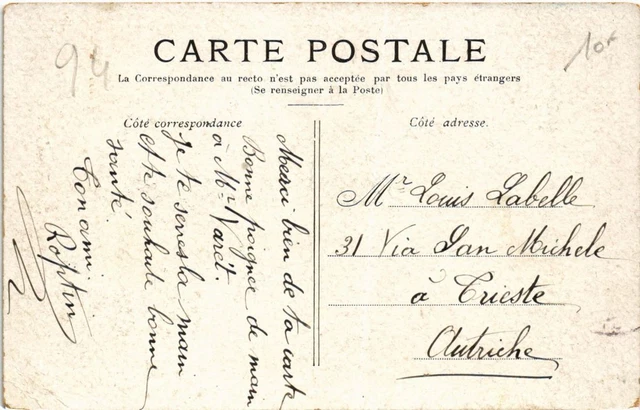 94
10f
CARTE POSTALE
La Correspondance au recto n'est pas acceptée par tous les pays étrangers
(Se renseigner à la Poste)
Côté correspondance
Côté adresse.
Merci bien de ta carte
Bonne poignée de main
à Mr Varét.
Je te serres la main
et te souhaite bonne
santé.
Ton ami.
Mr Louis Labelle
31 Via San Michele
à Trieste
Autriche